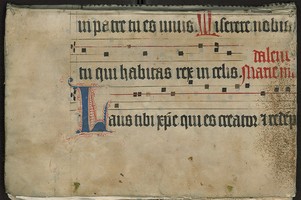 in patre tu es unus Miserere nobis
tu qui habitas rex in celis. Marie m
Laus tibi xpe qui es creator et rede